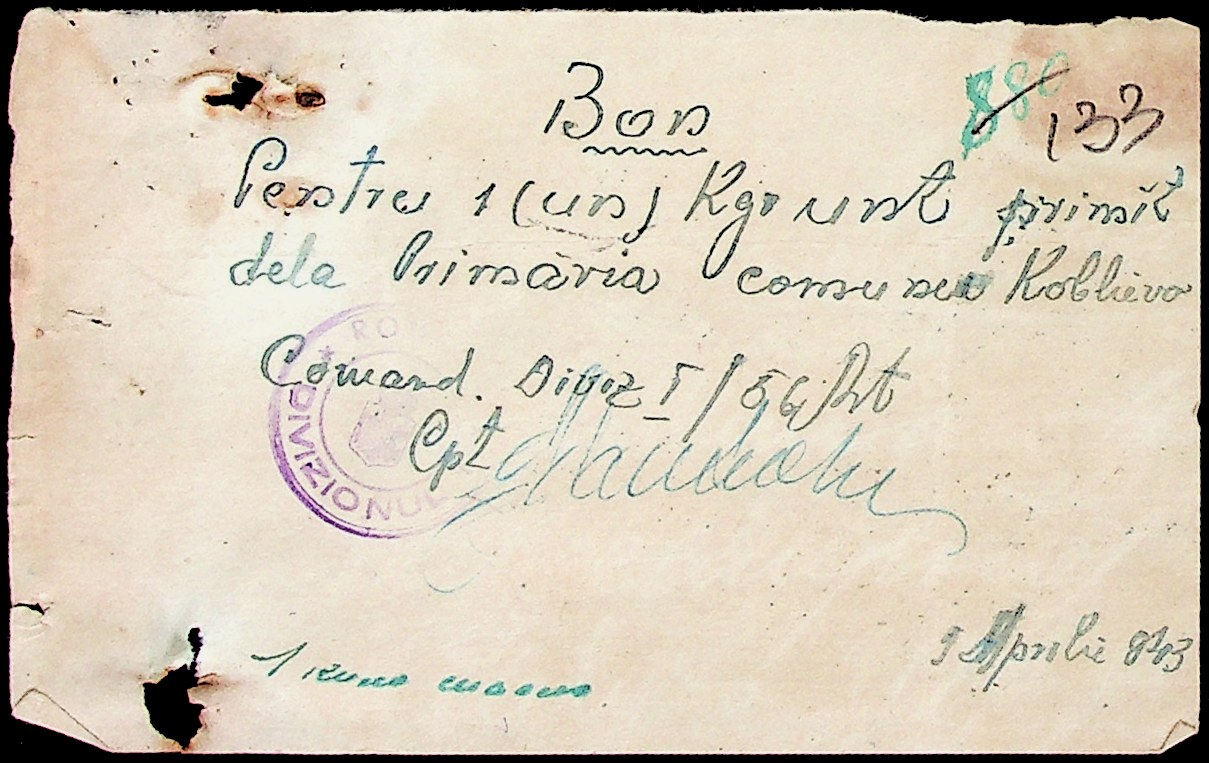 880 133
Bon
Pentru 1 (un) Kgr unt primit
dela Primăria comunei Koblievo
Comand. Diviz I/56 Art
Cpt
RO
DIVIZIONUL
1 кило масло
9 Aprilie 943